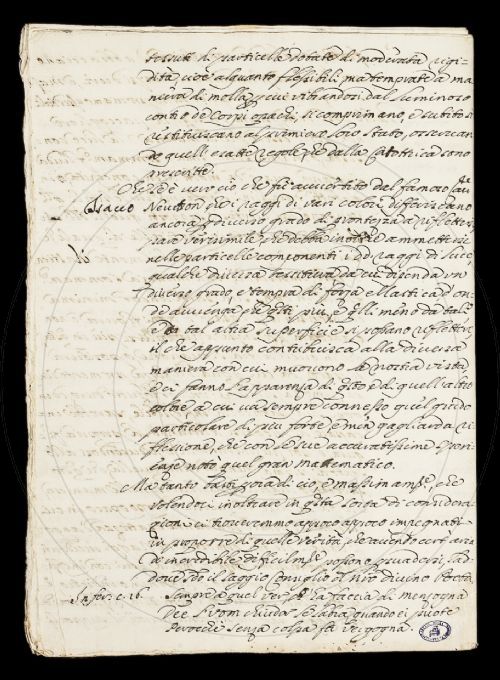 tessuti di particelle dotate di moderata rigi-
dità, cioè alquanto flessibili, ma temprate a ma
niera di molle, cui vibrandosi dal luminoso
contro de' corpi opachi, si comprimano, e subito si
restituiscano al primiero loro stato, osservan
do quell' esatte regole, che dalla Catottrica sono
prescritte.
Che se è vero ciò che fù avvertito dal famoso
Isacco Newton che i raggi di vari colori differiscano
ancora in diverso grado di prontezza a riflettersi
parà verisimile che debba inoltre ammettersi
nelle particelle componenti i dd. raggi di luce
qualche diversa tessitura da cui dipenda un
diverso grado, e tempra di forza elastica, on
de avvenga che questi più, e quelli meno da tale
e da tal altra superficie si possano riflettere
il che appunto contribuisca alla diversa
maniera con cui muovono la nostra vista,
e ci fanno l'apparenza di questo e di quell' altro
colore a cui và sempre connesso quel grado
particolare di più forte è men gagliarda ri
flessione, che con le sue accuratissime sperien
ze notò quel gran mattematico.
Ma tanto basti per ora di ciò, e massimamente, che
volendoci inoltrare in questa sorta di considera
zioni ci troveremmo appoco appoco impegnati
in proporre di quelle verità, che avendo cert' aria
di incredibile difficilmente possono persuadersi, lad
dove sò il saggio consiglio del nostro divino Poeta
Infer. c. 16. Sempre a quel ver ch' ha faccia di menzogna
Dee l'uom chiuder le labbia, quando ei puote
Perocchè senza colpa fa vergogna.